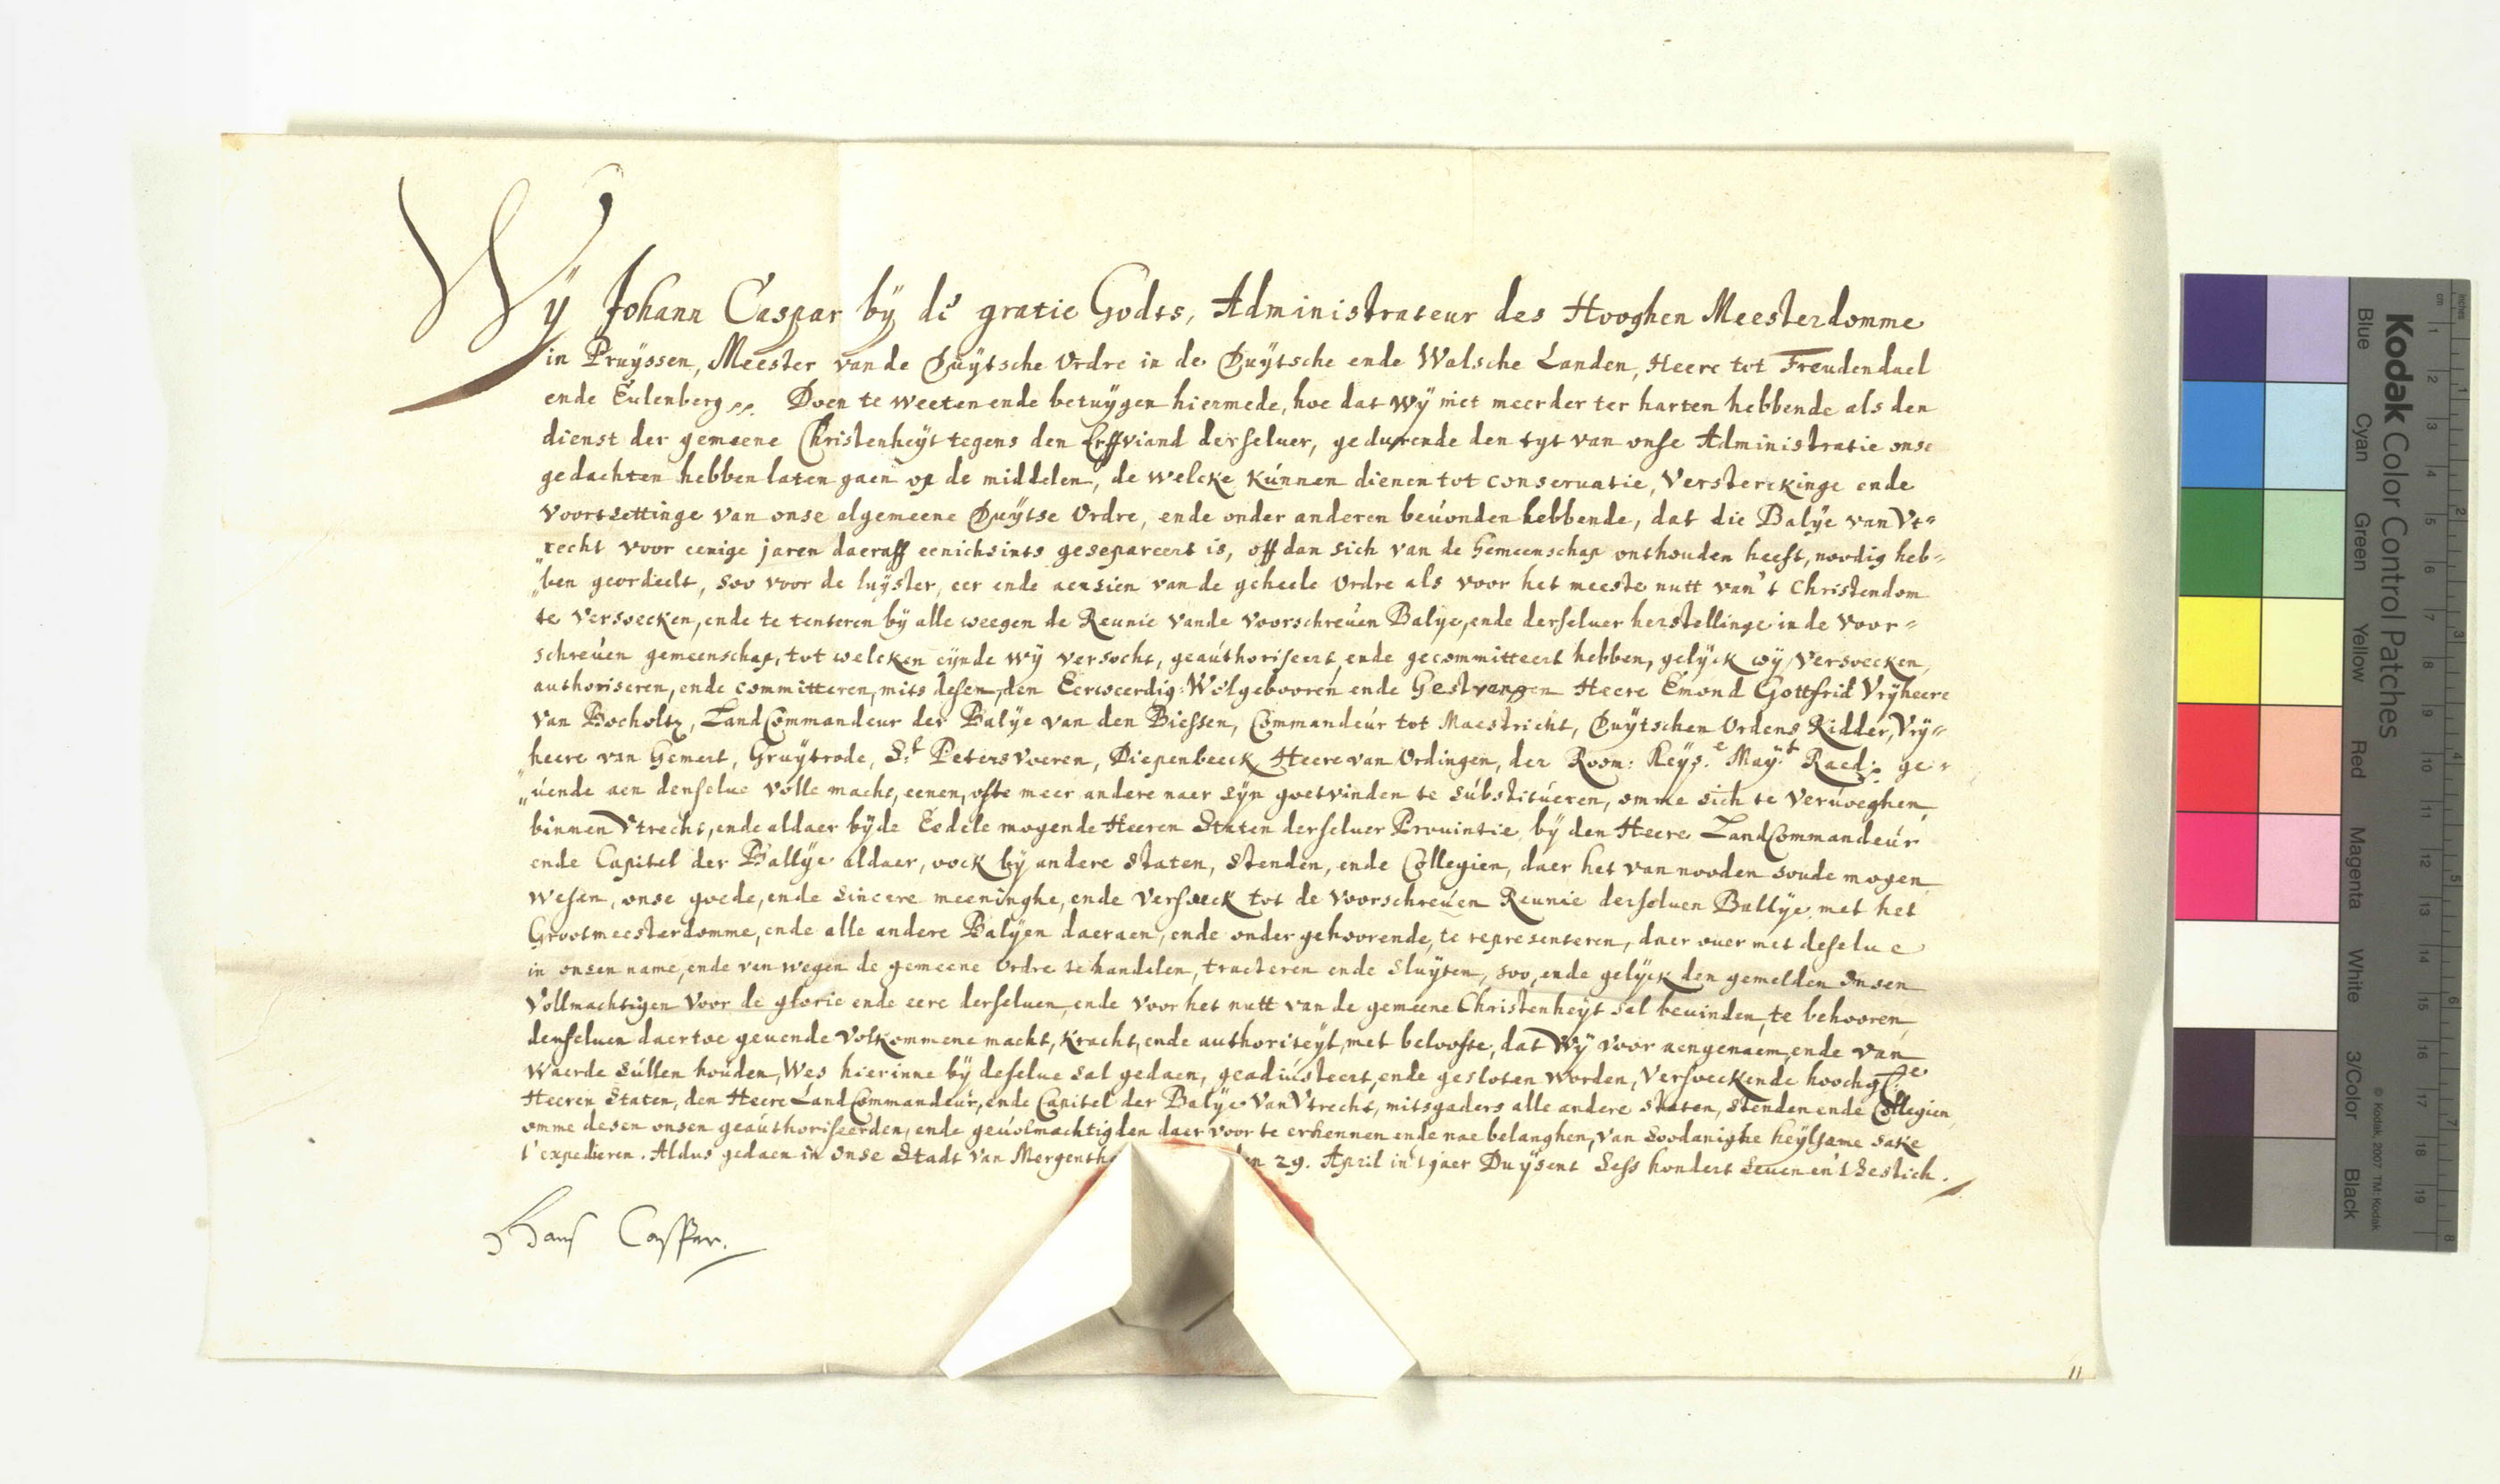 Wÿ Johann Caspar bÿ de gratie Godts, Administrateur des Hooghen Meesterdomme
in Pruÿssen, Meester vande Duÿtsche Ordre in de Duÿtsche ende Walsche Landen, Heere tot Freudendael
ende Eulenberg Doen te weeten ende betuÿgen hiermede, hoe dat wÿ niet meerder ter harten hebbende als den
dienst der gemeene Christenheÿt tegens den Erffviand derselver, gedurende den tyt van onse Administratie onse
gedachten hebben laten gaen op de middelen, de welcke kunnen dienen tot conservatie, Versterckinge ende
voortsettinge van onse algemeene Duÿtse Ordre, ende onder anderen bevonden hebbende, dat die Balÿe van Vt=
recht voor eenige jaren daeraff eenichsints gesepareert is, off dan sich van de Gemeenschap onthouden heeft, noodig heb=
"ben geordeelt, soo voor de luÿster, eer ende aensien van de geheele Ordre als voor het meeste nutt van't Christendom
te versoecken, ende te tenteren bÿ alle weegen de Reunie vande voorschreven Balye, ende derselver herstellinge in de voor=
schreven gemeenschap, tot welcken eÿnde wÿ versocht, geauthoriseert, ende gecommitteert hebben, gelÿck wÿ versoecken,
authoriseren, ende committeren, mits desen, den Eerweerdig: Wolgebooren ende Gestrangen Heere Emond Gottfrid Vrÿheere
van Bocholtz, LandCommandeur der Balÿe van den Biessen, Commandeur tot Maestricht, Duÿtschen Ordens Ridder, Vrÿ=
heere van Gemert, Gruÿtrode, St. Petersvoeren, Diepenbeeck, Heere van Ordingen, der Room: Keys.e Maÿ.t Raed; ge=
"vende aen denselve volle macht, eenen, ofte meer andere naer sÿn goetvinden te substitueren, omme sich te vervoeghen
binnen Vtrecht, ende aldaer bÿ de Eedele mogende Heeren Staten derselver Provintie, bÿ den Heere LandCommandeur
ende Capitel der Ballÿe aldaer, oock bÿ andere Staten, Stenden, ende Collegien, daer het van nooden soude mogen
wesen, onse goede, ende sincere meeninghe, ende versoeck tot de voorschreven Reunie derselven Ballÿe met het
Grootmeesterdomme, ende alle andere Balÿen daeraen, ende onder gehoorende, te representeren, daer over met deselve
in onsen name, ende van wegen de gemeene Ordre te handelen, tracteren ende sluÿten, soo, ende gelÿck den gemelden onsen
Vollmachtigen voor de glorie ende eere derselven, ende voor het nutt van de gemeene Christenheÿt sal bevinden, te behooren,
denselven daertoe gevende volkommene macht, kracht, ende authoriteÿt, met belofte, dat Wÿ voor aengenaem, ende van
waerde sullen houden, Wes hierinne bÿ deselve sal gedaen, geadiusteert, ende gesloten worden, versoeckende hoochg:e
Heeren Staten, den Heere LandCommandeur, ende Capitel der Balÿe van Vtrecht, mitsgaders alle andere Staten, Stenden ende Collegien
omme desen onsen geauthoriseerden, ende gevolmachtigden daer voor te erkennen ende nae belanghen, van soodanighe heÿlsame sake
t'expedieren. Aldus gedaen in onse Stadt van Mergenth en 29. April in't jaer Duÿsent Sess hondert Seven en't Sestich.
Hans Caspar.
11
Kodak Color Control Patches
Blue Cyan Green Yellow Red Magenta White 3/Color Black
© Kodak, 2007 TM: Kodak
inches 1 2 3 4 5 6 7 8
cm 1 2 3 4 5 6 7 8 9 10 11 12 13 14 15 16 17 18 19